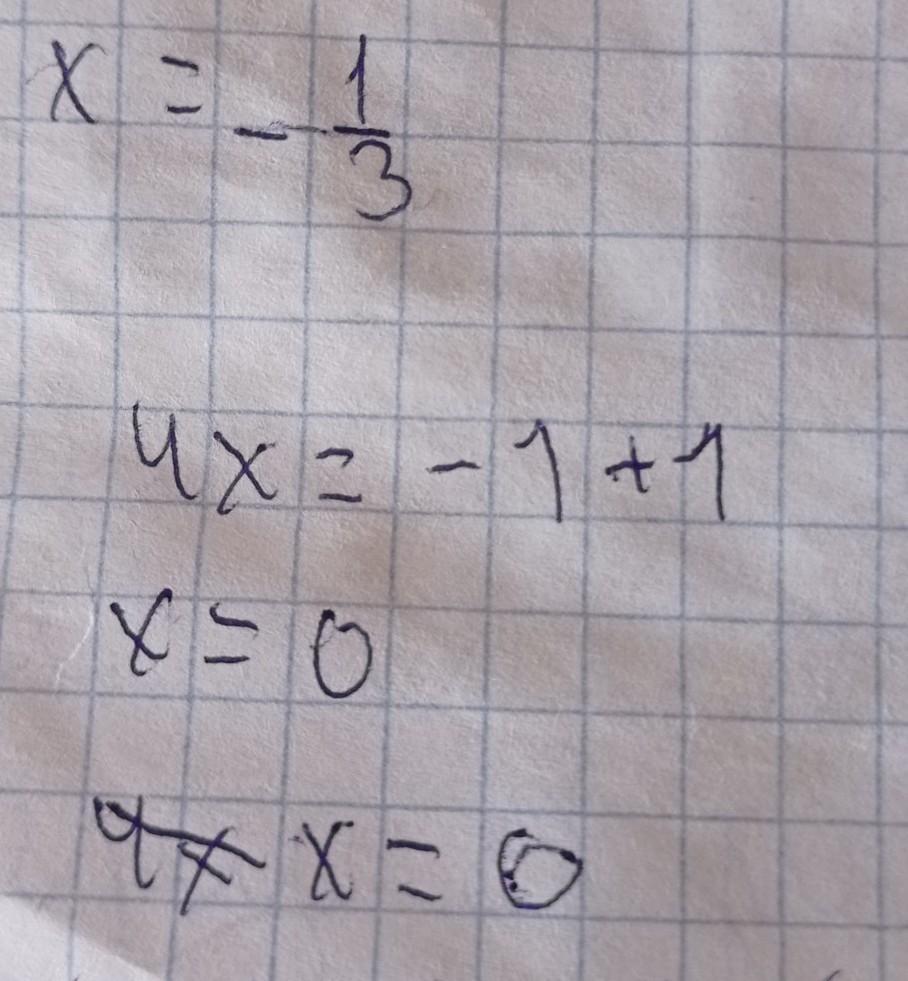 x = - 1/3
4x = - 1 + 1
x = 0
x = 0